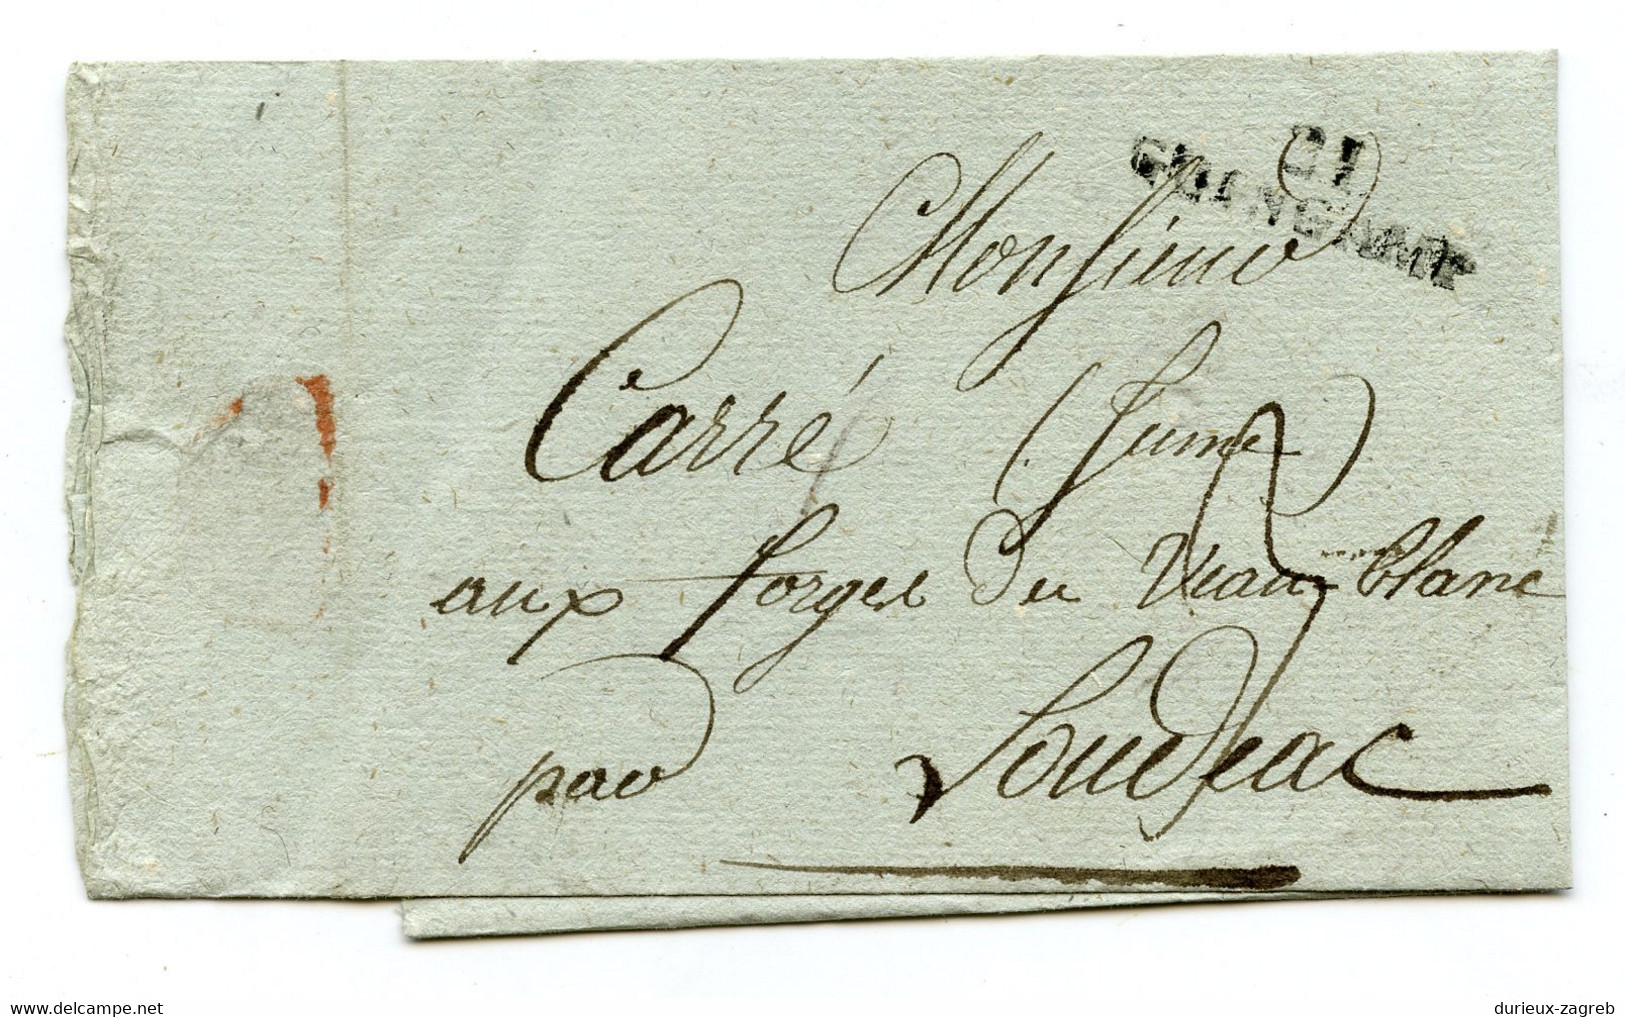 21
GUINGAMP
Monsieur
Carré (Jeune)
aux forges du Vaublanc
par Loudeac
www.delcampe.net
durieux-zagreb